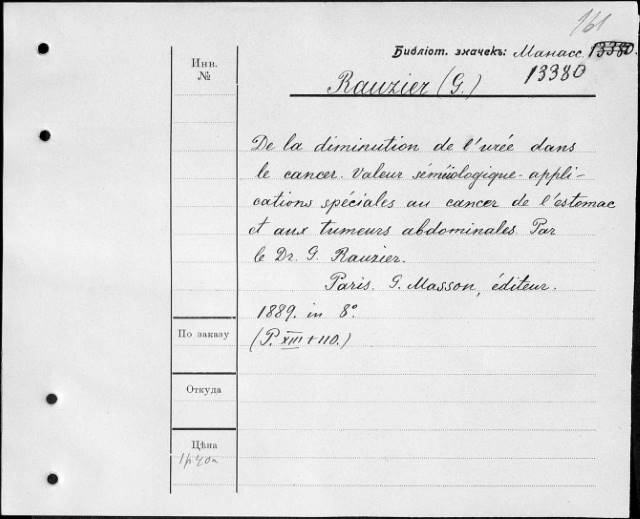 161
Библіот. значекъ: Манасс. 13380.
13380
Инв.
№
Rauzier (G.)
De la diminution de l'urée dans
le cancer. Valeur sémiologique-appli-
cations spéciales au cancer de l'estomac
et aux tumeurs abdominales. Par
le Dr. G. Rauzier.
Paris. G. Masson, éditeur.
1889. in 8°.
(P. XIII + 110.)
По заказу
Откуда
Цѣна